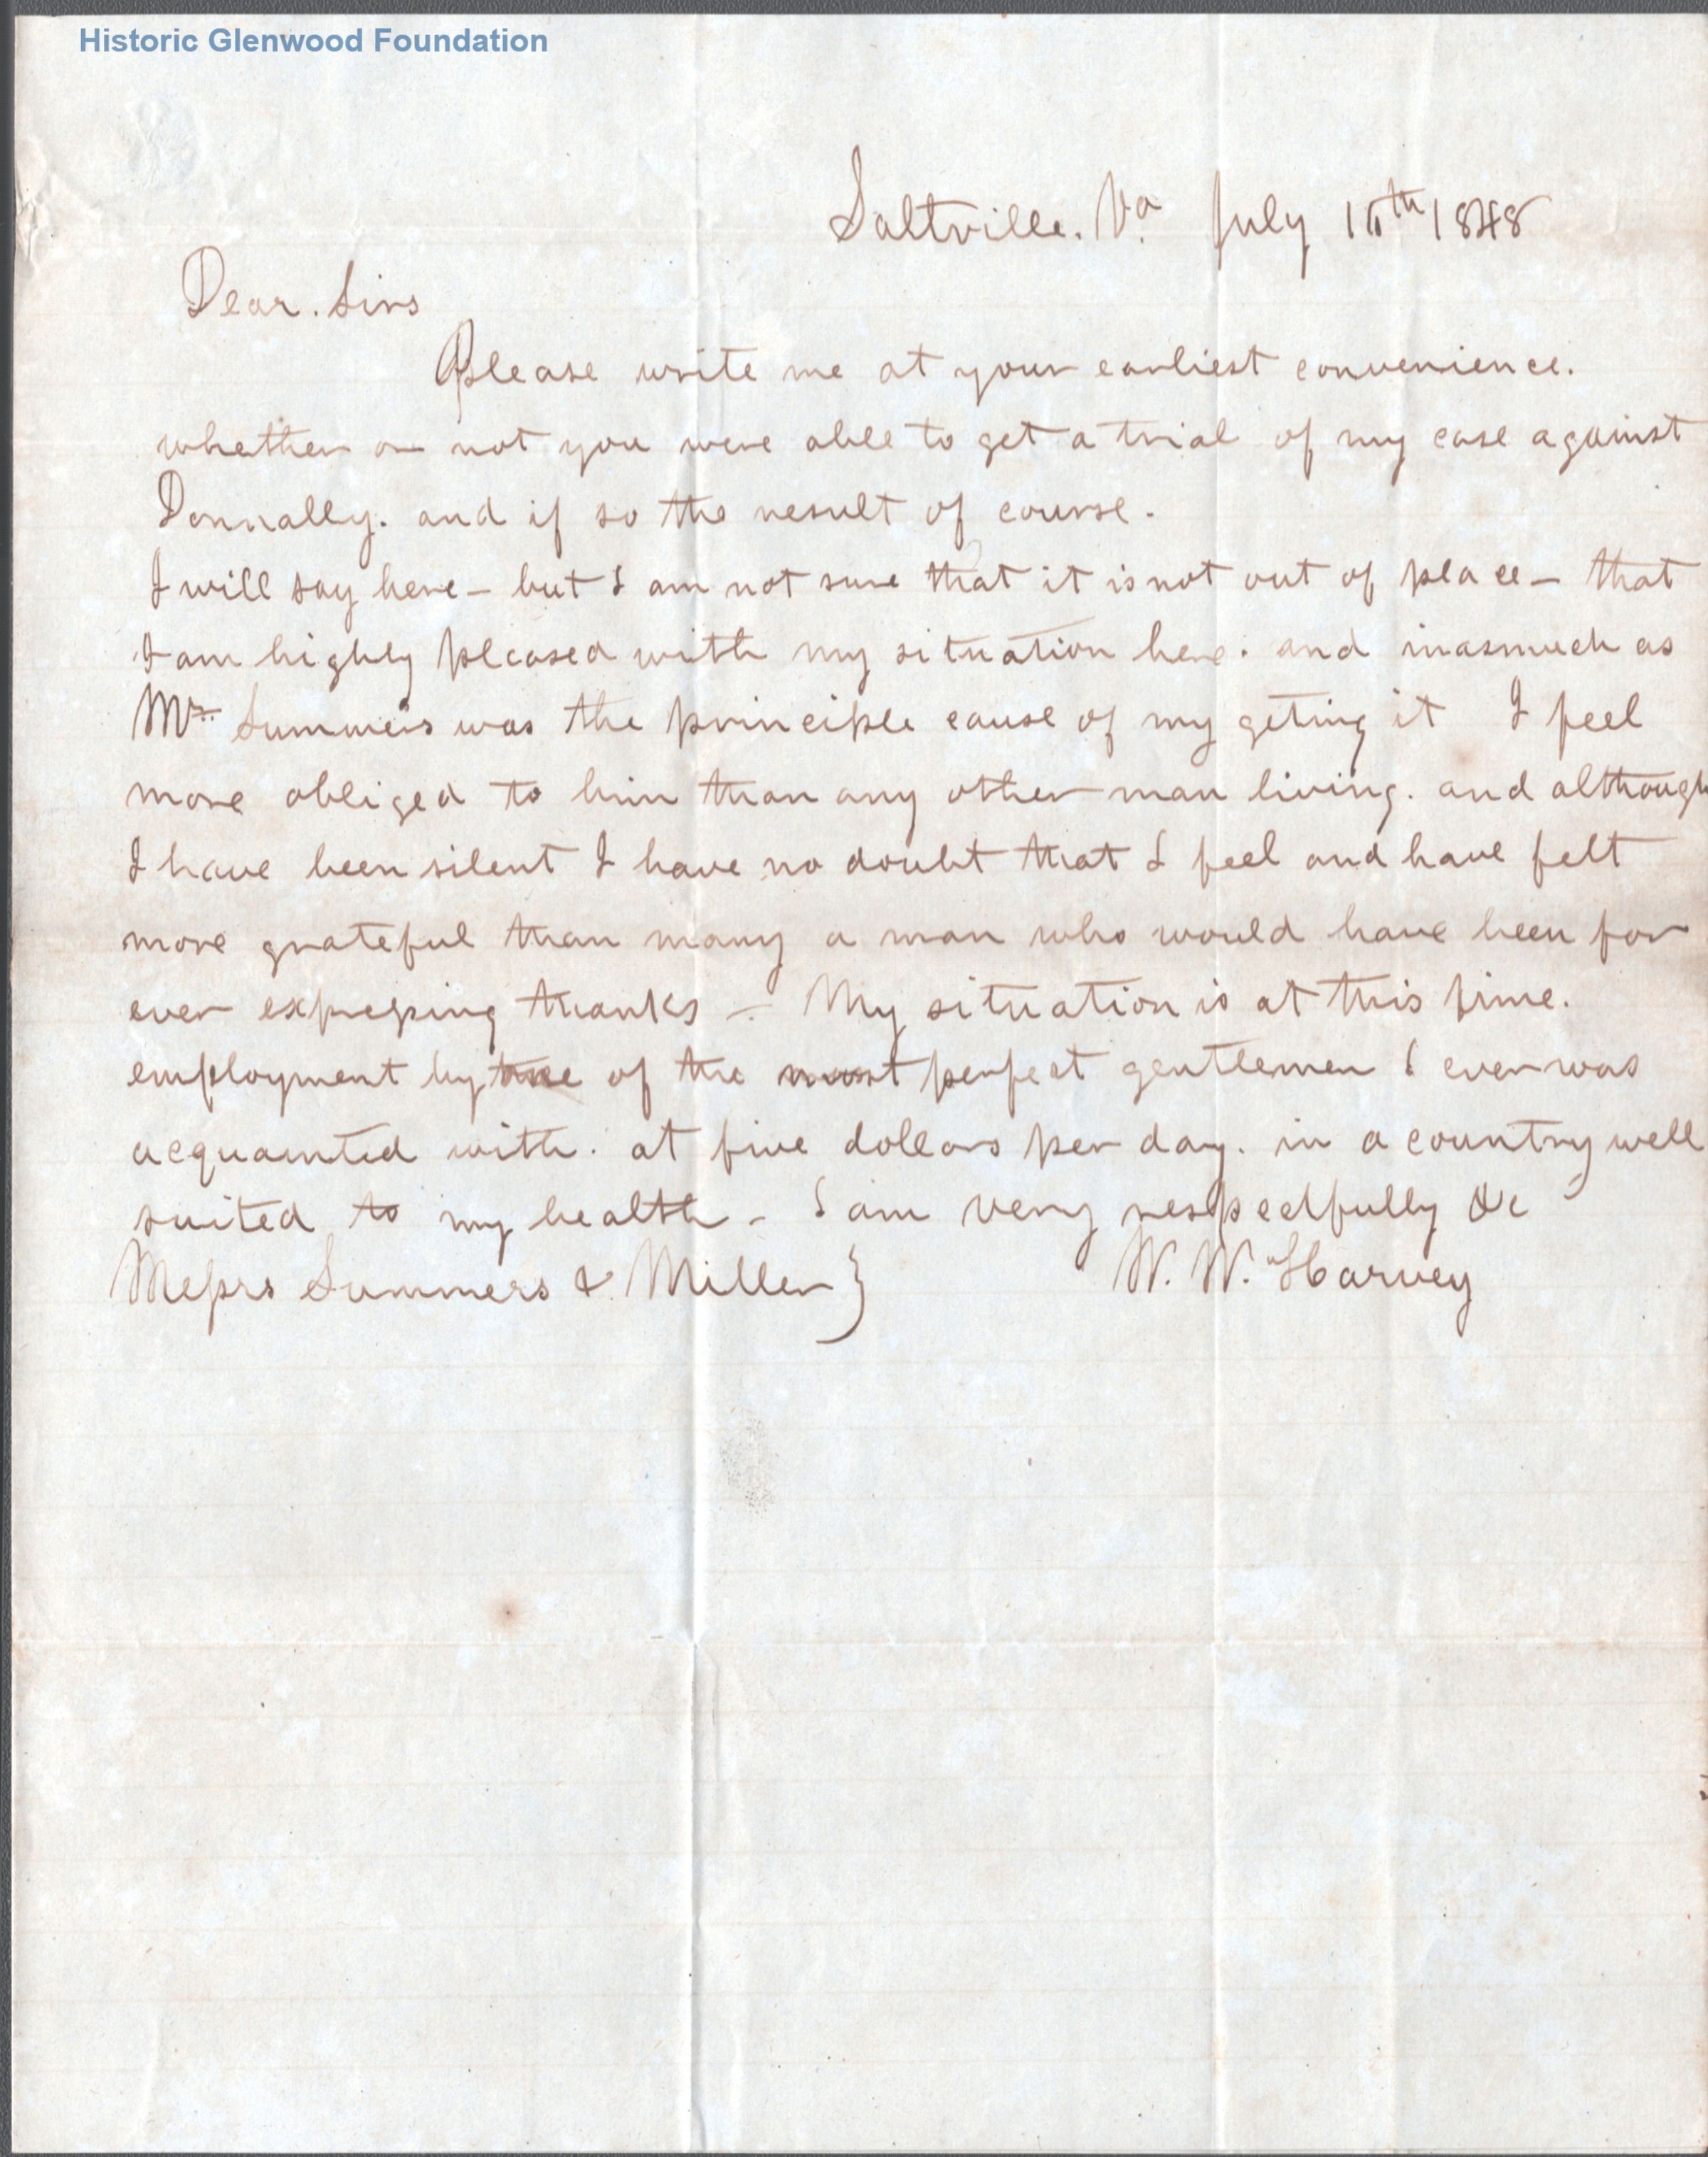 Historic Glenwood Foundation
Saltville. Va. July 1848
Dear. Sirs
Please write me at your earliest convenience.
whether or not you were able to get a trial of my case against
Donnally. and if so the result of course.
I will say here – but I am not sure that it is not out of place – that
I am highly pleased with my situation here. and inasmuch as
Mr. Summers was the principle cause of my geting it I feel
more obliged to him than any other man living. and although
I have been silent I have no doubt that I feel and have felt
more grateful than many a man who would have been for
ever expressing thanks – My situation is at this time.
employment by of the most perfect gentlemen I ever was
acquainted with. at five dollars per day. in a country well
suited to my health – I am very respectfully &c
Messrs Summers & Miller } W. W. Harvey